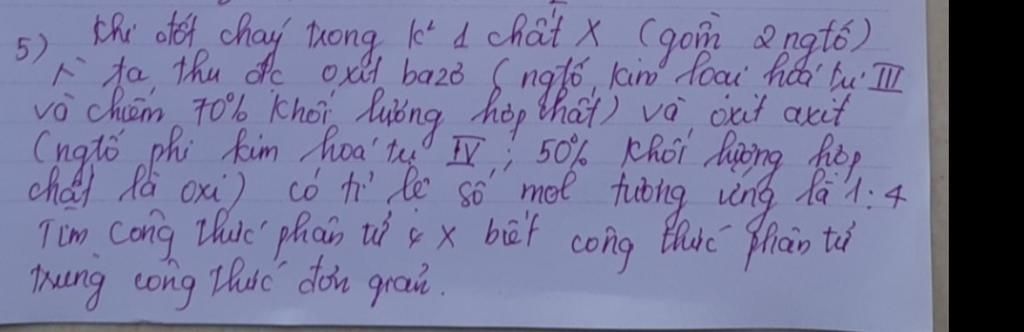 5) Khi đốt cháy trong k² 1 chất X (gồm 2 ngtố)
ta thu đc oxit bazơ (ngtố kim loại hoá trị III
và chiếm 70% khối lượng hợp chất) và oxit axit
(ngtố phi kim hoá trị IV ; 50% khối lượng hợp
chất là oxi) có tỉ lệ số mol tương ứng là 1:4
Tìm công thức phân tử X biết công thức phân tử
trùng công thức đơn giản.